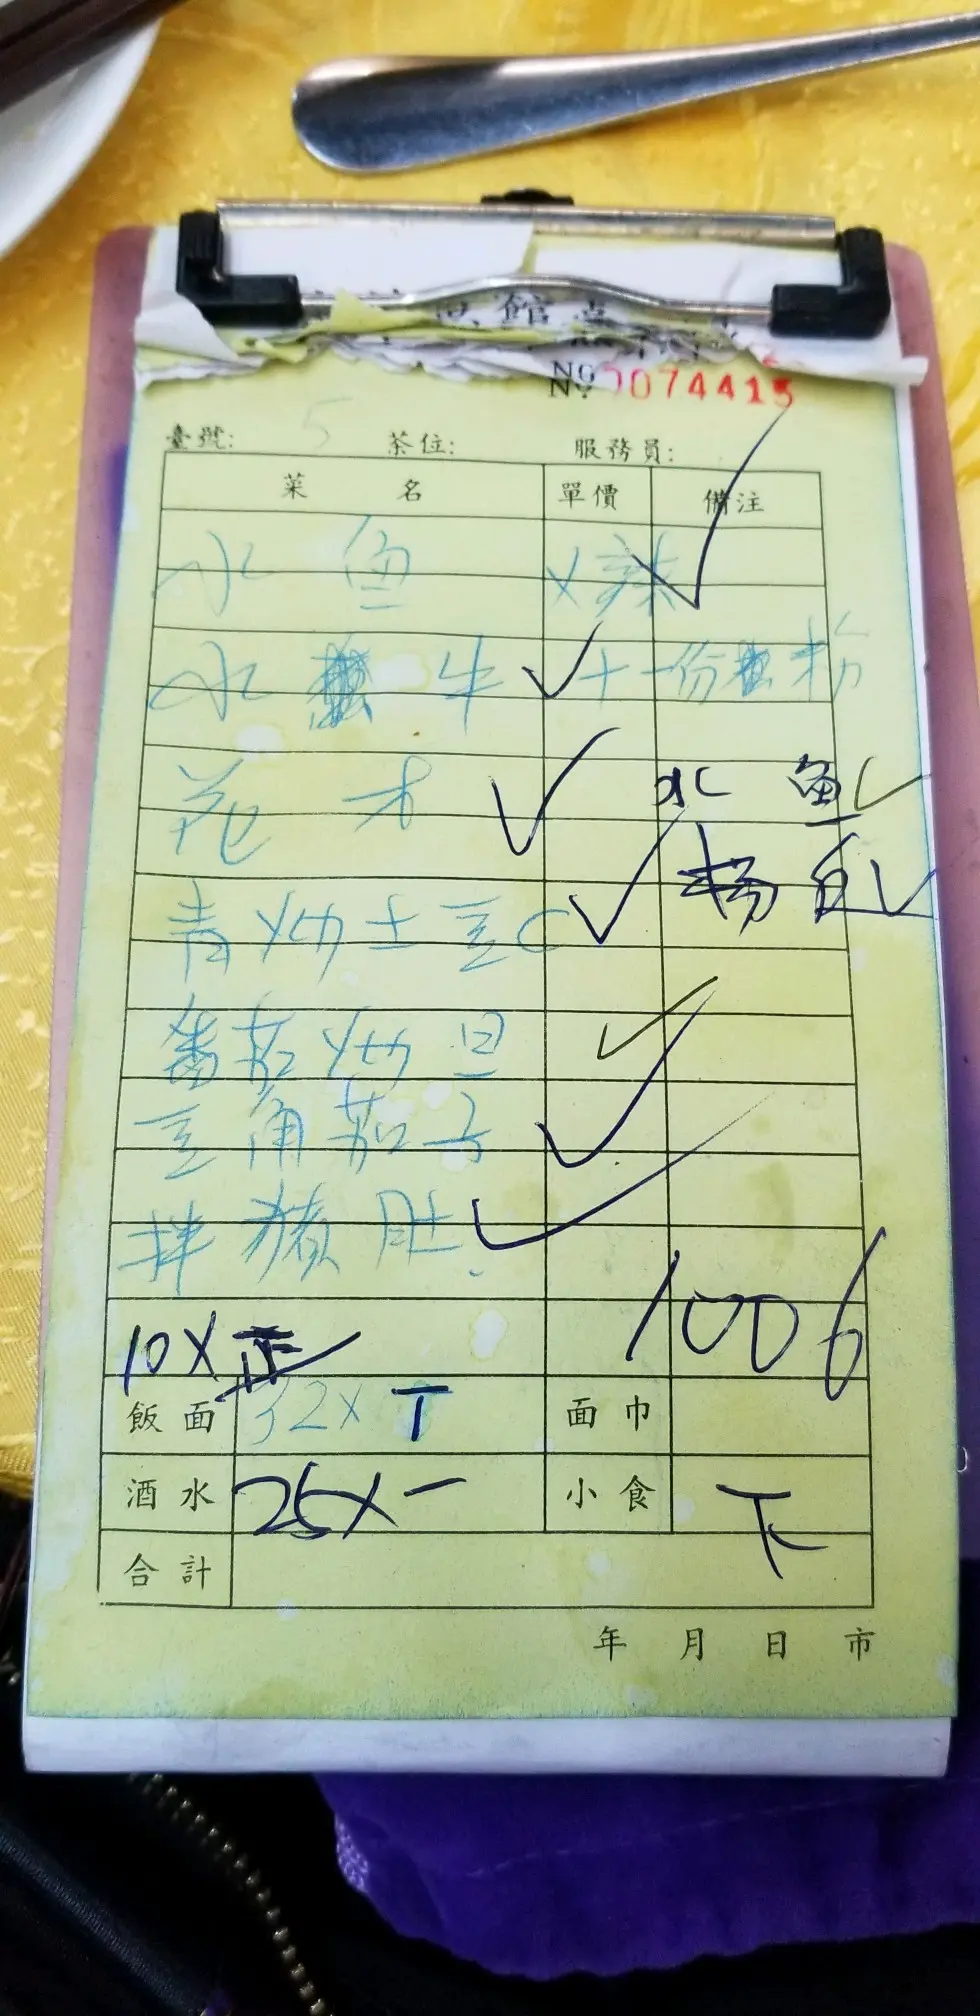 館
No 0074415
臺號: 5 茶位: 服務員:
菜 名 單價 備注
水 鱼 X辣
水 牛 十一份 粉
花 才
水 鱼
青炒土豆C
番茄炒旦
豆角茄子
拌猪肚
1006
10X正
飯面 32X 丅 面巾
酒水 25X一 小食 下
合計
年 月 日 市